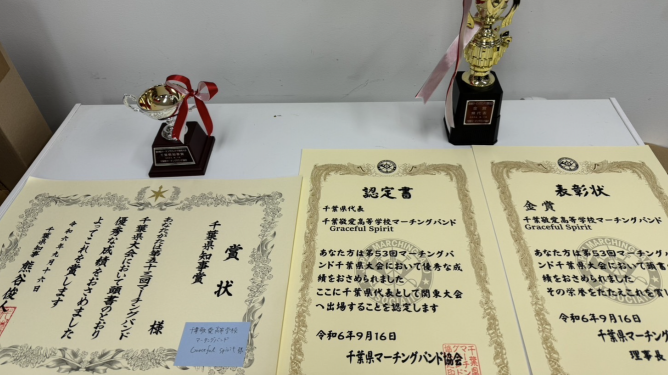 賞状
千葉県知事賞
様
あなたは第五十三回マーチングバンド
千葉県大会において頭書のとおり
優秀な成績をおさめました
よってこれを賞します
令和六年九月十六日
千葉県知事 熊谷俊人
千葉敬愛高等学校
マーチングバンド
Graceful Spirit 様
認定書
千葉県代表
千葉敬愛高等学校マーチングバンド
Graceful Spirit
あなた方は第53回マーチングバ
ンド千葉県大会において優秀な成
績をおさめられました
ここに千葉県代表として関東大会
へ出場することを認定します
令和6年9月16日
千葉県マーチングバンド協会
表彰状
金賞
千葉敬愛高等学校マーチングバンド
Graceful Spirit
あなた方は第53回マーチ
ンド千葉県大会において頭書
績をおさめられました
その栄誉をたたえこれを賞し
令和6年9月16日
千葉県マーチング
理事長